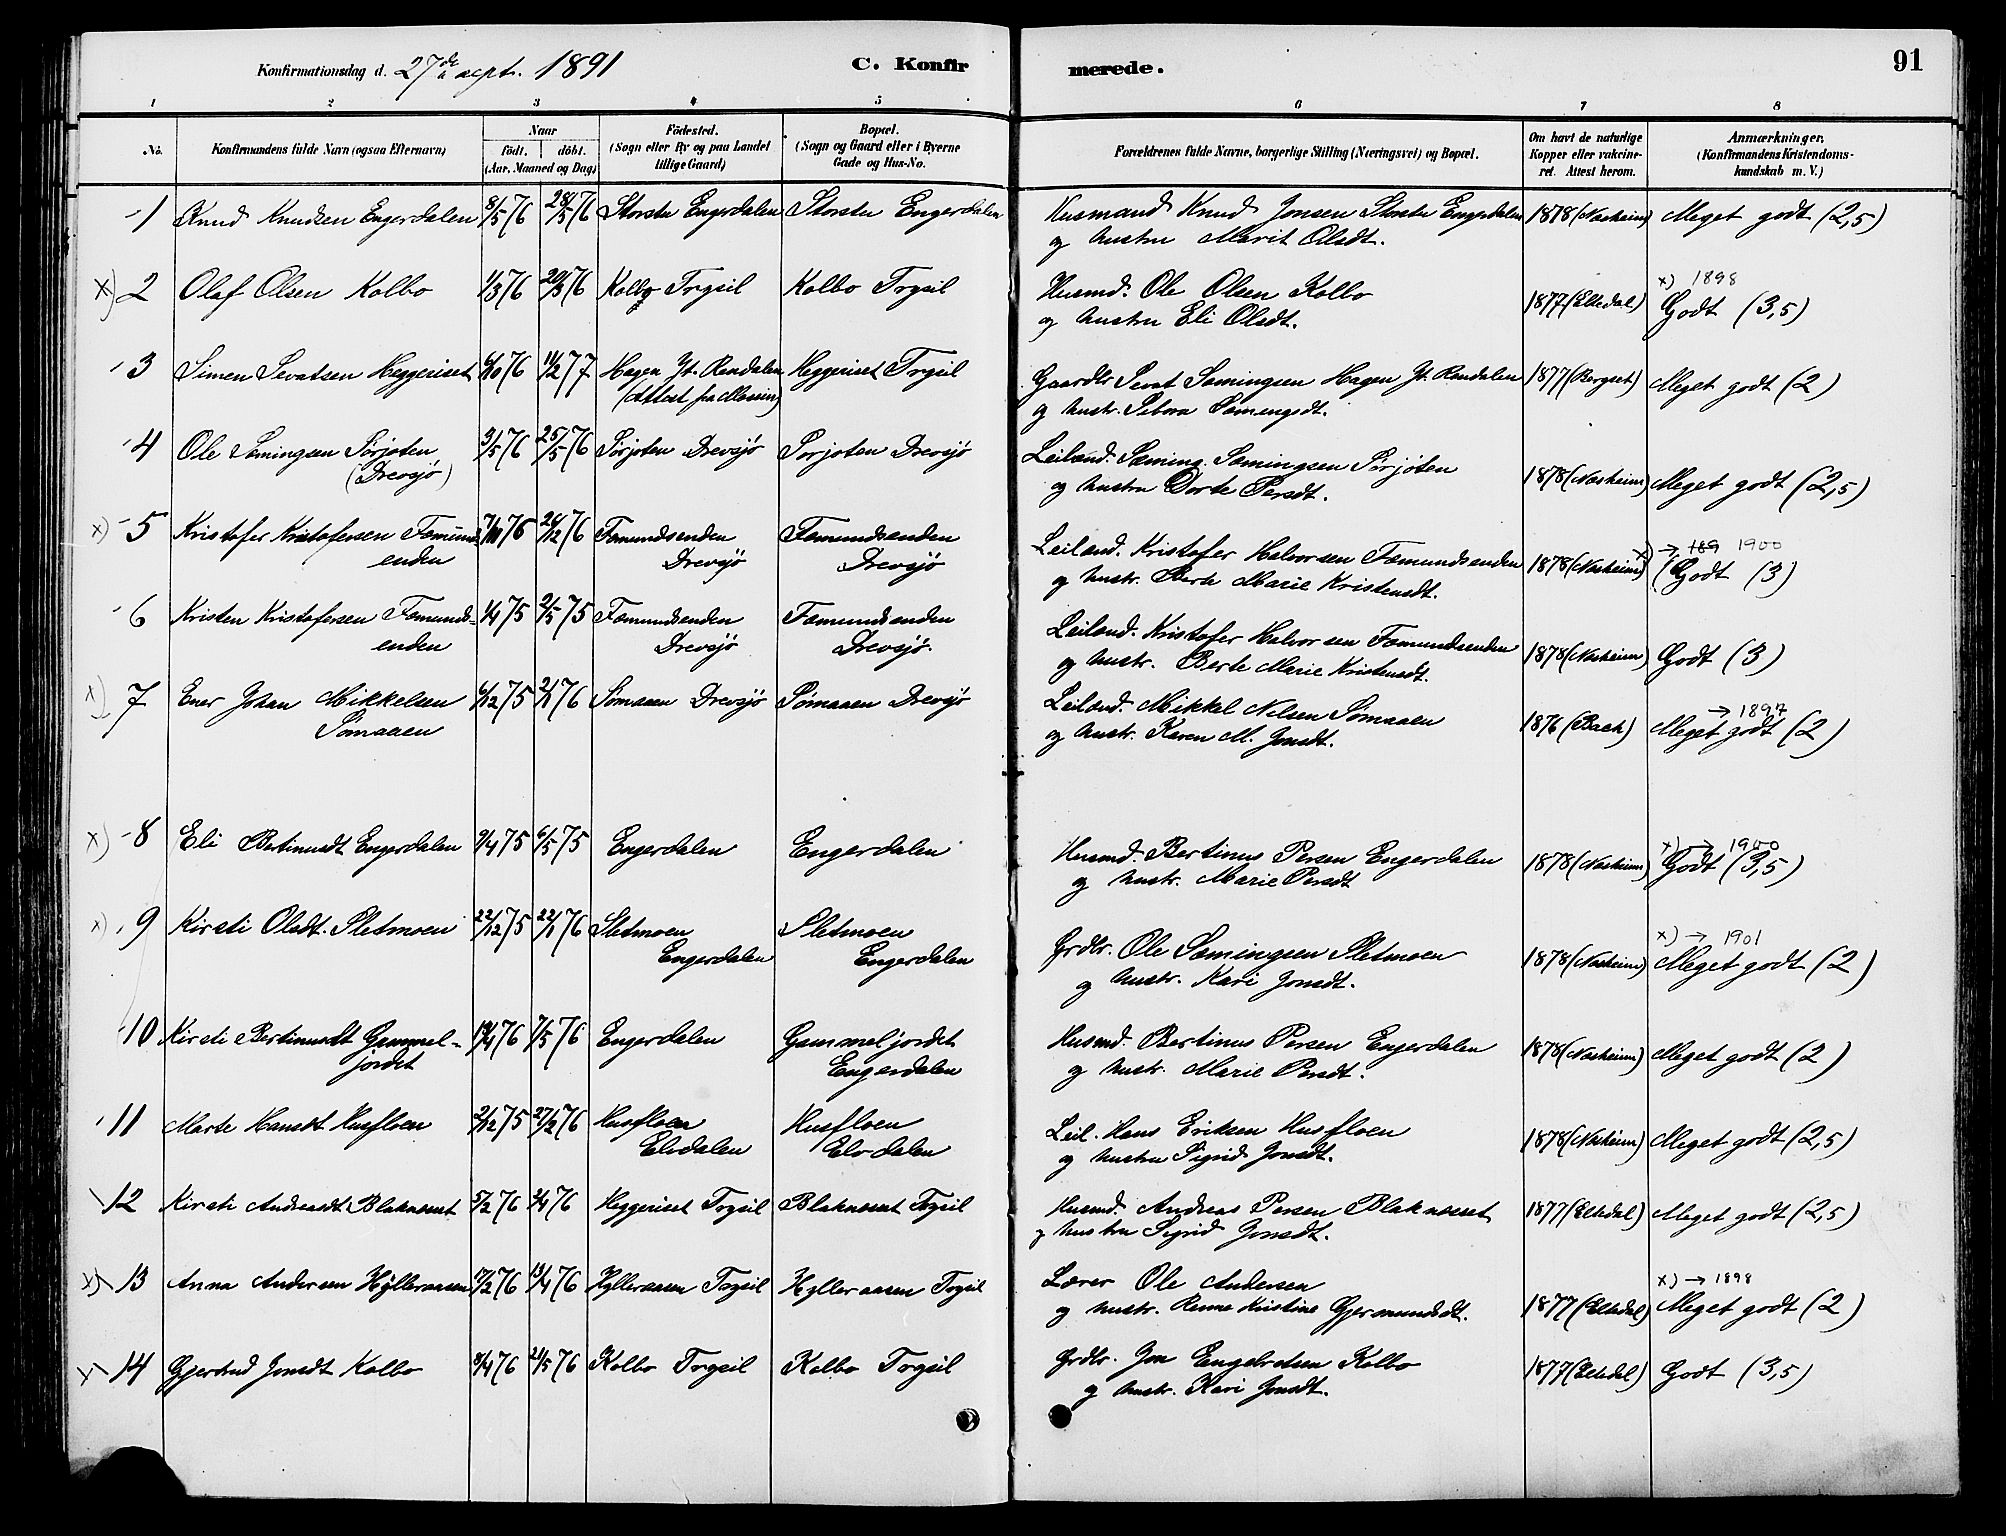 Konfirmationsdag d. 27de sept. 1891 C. Konfirmerede. 91
1 2 3 4 5 6 7 8
No. Konfirmandens fulde Navn (ogsaa Efternavn) Naar födt, döbt. (Aar, Maaned og Dag) Födested. (Sogn eller By og paa Landet tillige Gaard) Bopæl. (Sogn og Gaard eller i Byerne Gade og Hus-No. Forældrenes fulde Navne, borgerlige Stilling (Næringsvei) og Bopæl. Om havt de naturlige Kopper eller vakcineret. Attest herom. Anmærkninger. (Konfirmandens Kristendomskundskab m. V.)
1 Knud Knudsen Engerdalen 8/5 76 28/5 76 Storstu Engerdalen Storstu Engerdalen Husmand Knud Jonsen Storstu Engerdalen 1878 (Nasheim) Meget godt (2,5)
og hustru Marit Olsdt.
x) 2 Olaf Olsen Kolbo 1/3 76 20/3 76 Kolbo Trysil Kolbo Trysil Husmd. Ole Olsen Kolbo 1877 (Elledal) x) 1898 Godt (3,5)
og hustru Eli Olsdt.
3 Simen Sevatsen Heggeriset 6/10 76 11/2 77 Hagen Yt. Rendalen Heggeriset Trysil Gaardbr. Sevat Samingsen Hagen Yt. Rendalen 1877 (Bergset) Meget godt (2)
og hustr. Samingsdt.
4 Ole Samingsen Sørjoten 3/5 76 25/5 76 Sørjoten Drevsjø Sørjoten Drevsjø Leiland. Saming Samingsen Sørjoten 1878 (Nasheim) Meget godt (2,5)
(Drevsjø) og hustru Dorte Persdt.
x) 5 Kristofer Kristofersen Fæmunds- 7/10 76 26/12 76 Fæmundsenden Fæmundsenden Leiland. Kristofer Halvorsen Fæmundsenden 1878 (Nasheim) x) → 189 1900 Godt (3)
enden Drevsjø Drevsjø og hustr. Berte Marie Kristensdt.
6 Kristen Kristofersen Fæmunds- 1/4 75 2/5 75 Fæmundsenden Fæmundsenden Leiland. Kristofer Halvorsen Fæmundsenden 1878 (Nasheim) Godt (3)
enden Drevsjø Drevsjø. og hustr. Berte Marie Kristensdt.
x) 7 Ener Johan Mikkelsen 6/12 75 2/1 76 Sømaaen Drevsjø Sømaaen Drevsjø Leiland. Mikkel Nilsen Sømaaen 1876 (Bach) → 1897 Meget godt (2)
Sømaaen og hustr. Karen M. Jonsdt.
x) 8 Eli Bertinusdt Engerdalen 9/4 75 6/5 75 Engerdalen Engerdalen Husmd. Bertinus Persen Engerdalen 1878 (Nasheim) x) → 1900 Godt (3,5)
og hustr. Marie Persdt
x) 9 Kirsti Olsdt. Sletmoen 22/12 75 22/1 76 Sletmoen Sletmoen Grdbr. Ole Samingsen Sletmoen 1878 (Nasheim) x) → 1901 Meget godt (2)
Engerdalen Engerdalen og hustr. Kari Jonsdt.
10 Kirsti Bertinusdt Gammel- 4/4 76 7/5 76 Engerdalen Gammeljordet Husmd. Bertinus Persen Engerdalen 1878 (Nasheim) Meget godt (2)
jordet Engerdalen og hustr. Marie Persdt.
11 Marte Hansdt Husfloen 2/12 75 27/2 76 Husfloen Husfloen Leil. Hans Eriksen Husfloen 1878 (Nasheim) Meget godt (2,5)
Elvdalen Elvdalen og hustru Sigrid Jonsdt.
12 Kirsti Andreasdt Blaknæset 5/2 76 2/4 76 Heggeriset Trysil Blaknæset Trysil Husmd. Andreas Persen Blaknæset 1877 (Elledal) Meget godt (2,5)
og hustru Sigrid Jonsdt.
x) 13 Anna Andersen Hylleraasen 17/2 76 13/4 76 Hylleraasen Trysil Hylleraasen Trysil Lærer Ole Andersen 1877 (Elledal) x) → 1898 Meget godt (2)
og hustr. Kristine Gjermundsdt.
x) 14 Gjertrud Jonsdt Kolbo 8/4 76 21/5 76 Kolbo Trysil Kolbo Trysil Grdbr. Jon Engebretsen Kolbo 1877 (Elledal) Godt (3,5)
og hustr. Kari Jonsdt.